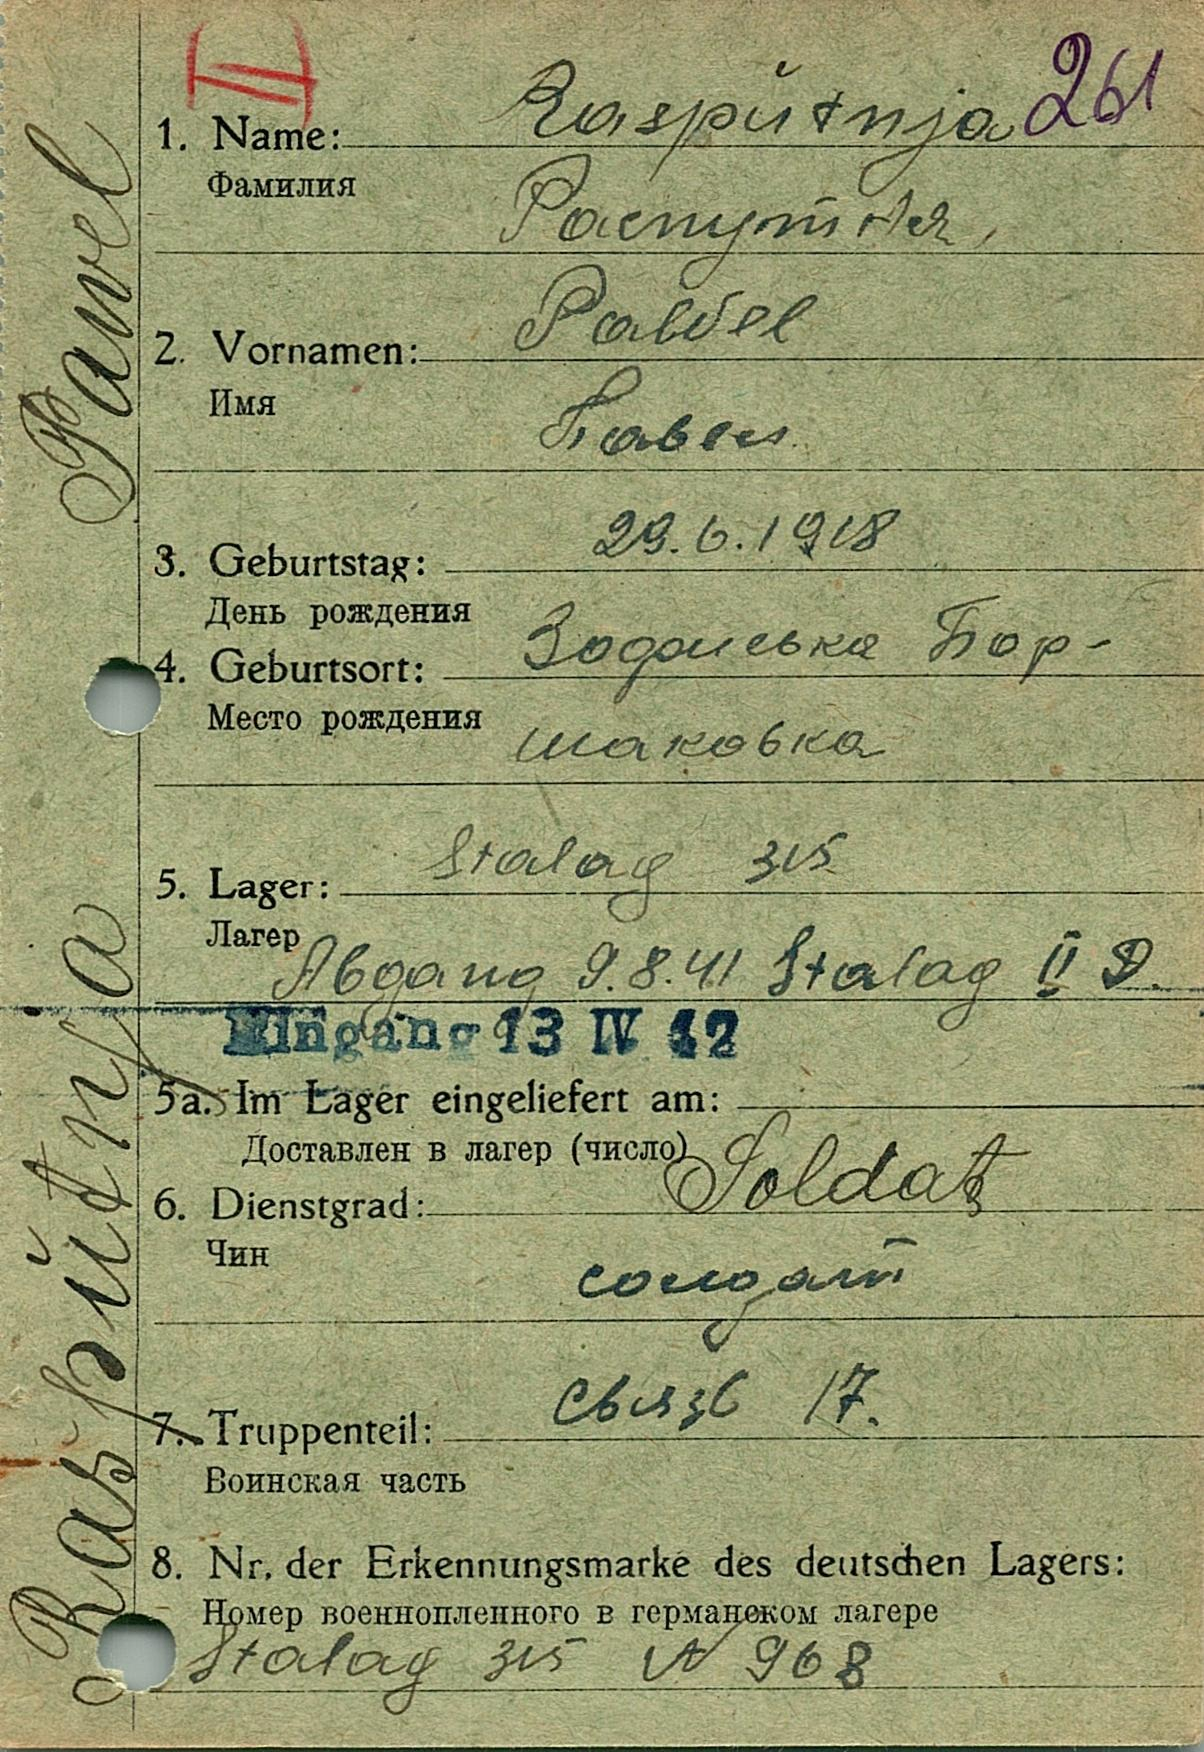 II
261
1. Name: Raspŭtnja
Фамилия
Распутня,
2. Vornamen: Pawel
Имя
Павел
3. Geburtstag: 29.6.1918
День рождения
4. Geburtsort: Бор-
Место рождения
шаковка
5. Lager: Stalag 315
Лагер
Abgang 9.8.41 Stalag II D.
Eingang 13 IV 42
5a. Im Lager eingeliefert am:
Доставлен в лагер (число)
6. Dienstgrad: Soldat
Чин
солдат
7. Truppenteil: связь 17.
Воинская часть
8. Nr. der Erkennungsmarke des deutschen Lagers:
Номер военнопленного в германском лагере
Stalag 315 N 968
Raspŭtnja Pawel